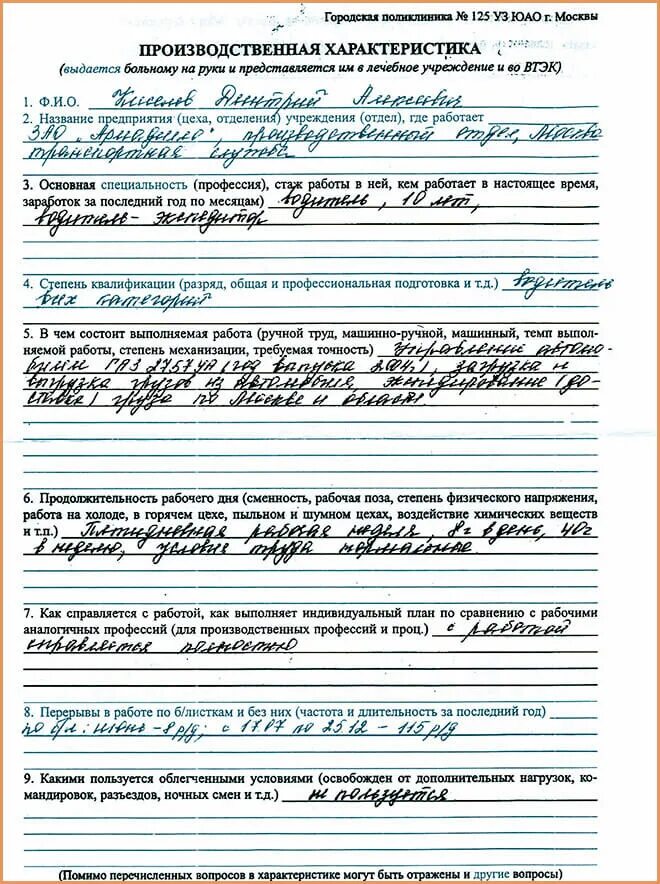 Городская поликлиника № 125 УЗ ЮАО г. Москвы
ПРОИЗВОДСТВЕННАЯ ХАРАКТЕРИСТИКА
(выдается больному на руки и представляется им в лечебное учреждение и во ВТЭК)
1. Ф.И.О. Киселев Дмитрий Алексеевич
2. Название предприятия (цеха, отделения) учреждения (отдел), где работает
ЗАО „ “, производственный отдел, Москва
транспортная служба
3. Основная специальность (профессия), стаж работы в ней, кем работает в настоящее время,
заработок за последний год по месяцам) водитель, 10 лет,
водитель-экспедитор
4. Степень квалификации (разряд, общая и профессиональная подготовка и т.д.) водитель
всех категорий
5. В чем состоит выполняемая работа (ручной труд, машинно-ручной, машинный, темп выпол-
няемой работы, степень механизации, требуемая точность) Управление автомо-
билем ГАЗ 2757УА (год выпуска 2004), загрузка и
выгрузка грузов из автомобиля, экспедирование (до-
ставка) груза по Москве и области.
6. Продолжительность рабочего дня (сменность, рабочая поза, степень физического напряжения,
работа на холоде, в горячем цехе, пыльном и шумном цехах, воздействие химических веществ
и т.п.) Пятидневная рабочая неделя, 8ч в день, 40ч
в неделю, условия труда нормальные
7. Как справляется с работой, как выполняет индивидуальный план по сравнению с рабочими
аналогичных профессий (для производственных профессий и проц.) с работой
справляется полностью
8. Перерывы в работе по б/листкам и без них (частота и длительность за последний год)
по б/л: июнь - 8 р/д; с 17.07 по 25.12 - 115 р/д
9. Какими пользуется облегченными условиями (освобожден от дополнительных нагрузок, ко-
мандировок, разъездов, ночных смен и т.д.) не пользуется
(Помимо перечисленных вопросов в характеристике могут быть отражены и другие вопросы)